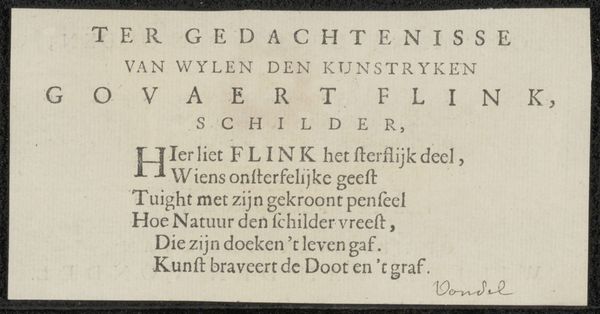 TER GEDACHTENISSE
VAN WYLEN DEN KUNSTRYKEN
GOVAERT FLINK,
SCHILDER,
HIer liet FLINK het ſterflijk deel,
Wiens onſterfelijke geeſt
Tuight met zijn gekroont penſeel
Hoe Natuur den ſchilder vreeſt,
Die zijn doeken 't leven gaf.
Kunſt braveert de Doot en 't graf.
Vondel